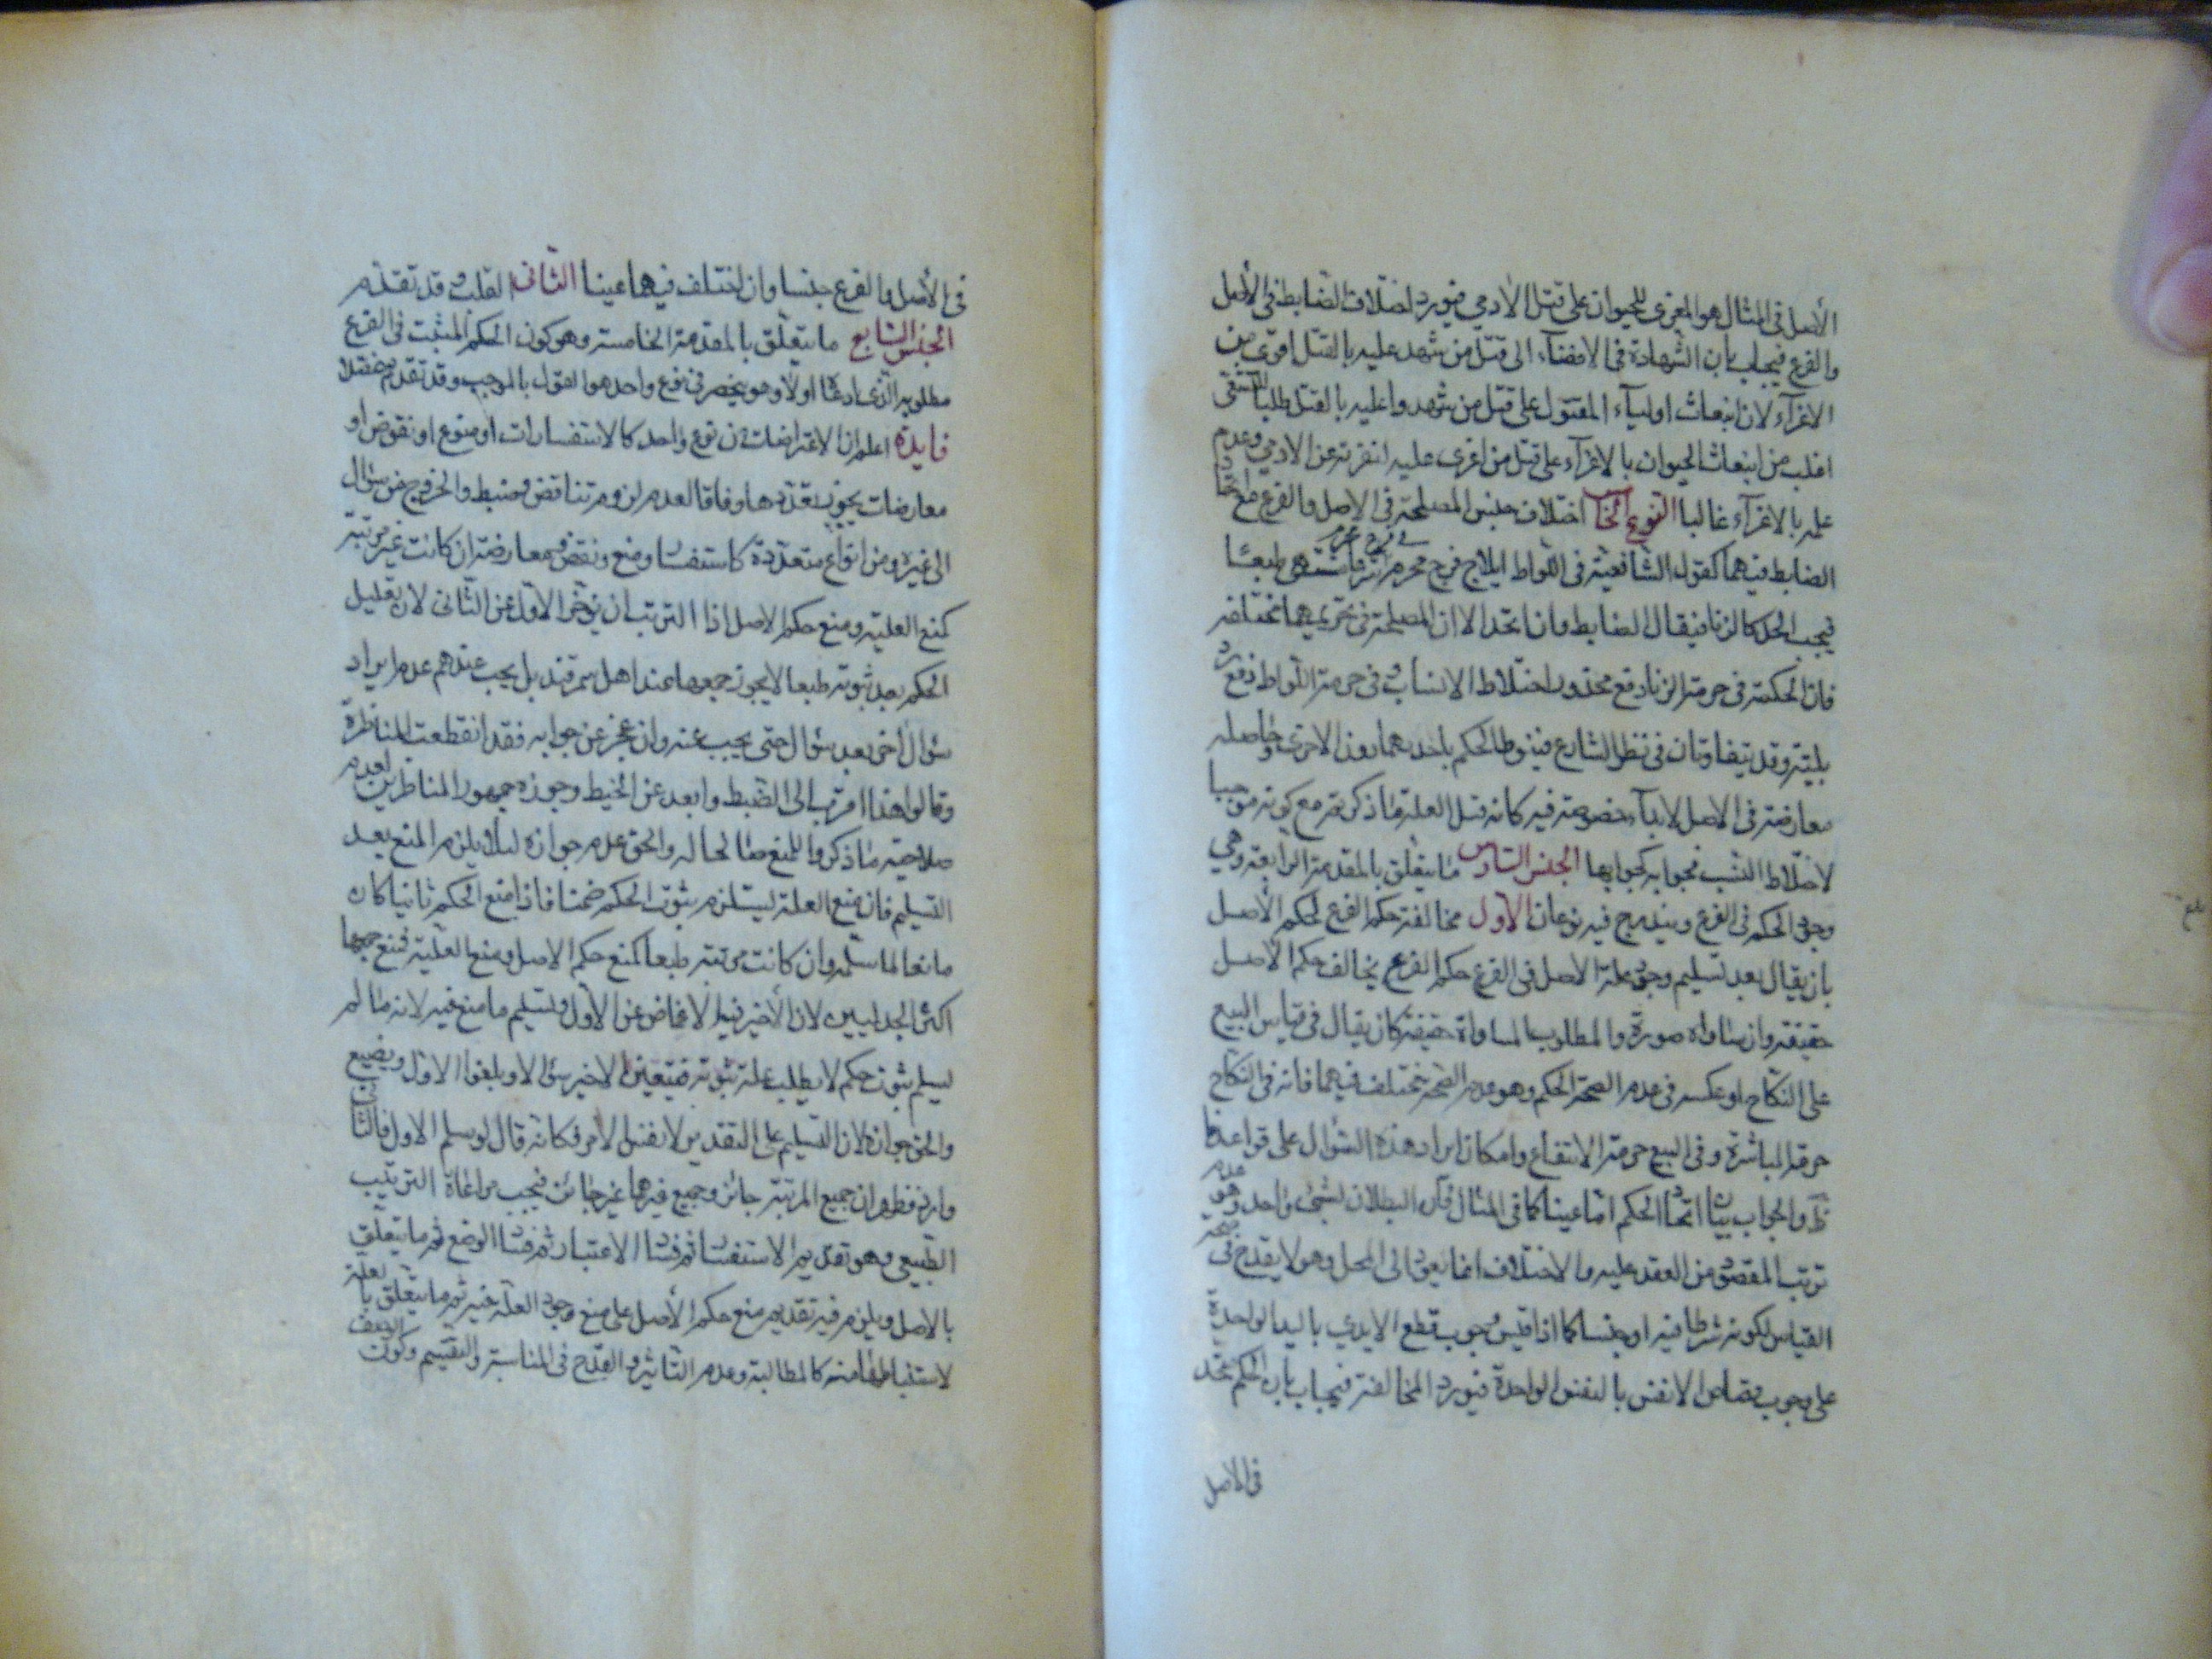 الأصل في المثال هو المغرى للحيوان على قتل الادمي فيورد اختلاف الضابط في الأصل
والفرع فيجاب بان الشهادة في الافضاء الى قتل من شهد عليه بالقتل اقوى من
الاغراء لان انبعاث اولياء المقتول على قتل من شهدوا عليه بالقتل طلبا للتشفى
اغلب من انبعاث الحيوان بالاغراء على قتل من اغرى عليه لنفرته عن الادمي وعدم
علمه بالاغراء غالبا النوع الخامس اختلاف جنس المصلحة في الاصل والفرع مع اتحاد
الضابط فيهما كقول الشافعية في اللواط ايلاج فرج في فرج محرم شرعا مشتهى طبعا
فيجب الحد كالزنا فيقال الضابط وان اتحد الا ان المصلحة في تحريمهما مختلفة
فان الحكمة في حرمة الزنا دفع محذور اختلاط الانساب وفي حرمة اللواط دفع رذيلة
وقد يتفاوتان في نظر الشارع فينوط الحكم باحدهما دون الاخرى وحاصله
معارضة في الاصل لابداء خصوصية فيه كانه قيل العلة ما ذكرتم مع كونه موجبا
لاختلاط النسب فجوابه كجوابها الجنس السادس ما يتعلق بالمقدمة الرابعة وهي
وجود الحكم في الفرع ويندرج فيه نوعان الأول مخالفة حكم الفرع لحكم الأصل
بان يقال بعد تسليم وجود علة الاصل في الفرع حكم الفرع يخالف حكم الأصل
حقيقة وان ساواه صورة والمطلوب المساواة حقيقة كان يقال في قياس البيع
على النكاح او عكسه في عدم الصحة الحكم وهو عدم الصحة مختلف فيهما فانه في النكاح
حرمة المباشرة وفي البيع حرمة الانتفاع وامكان ايراد هذه السؤال على قواعدنا
ظ والجواب ببيان اتحاد الحكم اما عينا كما في المثال فان البطلان لشئ واحد وهو عدم
ترتب المقصود من العقد عليه والاختلاف انما يعود الى المحل وهو لا يقدح في صحة
القياس لكونه شرطا فيه او جنسا كما اذا قيس وجوب قطع الايدي باليد الواحدة
على وجوب قصاص الانفس بالنفس الواحدة فيورد المخالفة فيجاب بان الحكم متحد
في الاصل
في الأصل والفرع جنسا وان اختلف فيهما عينا الثاني القلب وقد تقدم
الجنس السابع ما يتعلق بالمقدمة الخامسة وهو كون الحكم المثبت في الفرع
مطلوبه الذي ادعاه اولا وهو ينحصر في نوع واحد هو القول بالموجب وقد تقدم مفصلا
فايدة اعلم ان الاعتراضات من نوع واحد كالاستفسارات او منوع او نقوض او
معارضات يجوز تعددها وفاقا لعدم لزوم تناقض وخبط والخروج من سؤال
الى غيره ومن انواع متعددة كاستفسار ومنع ونقض ومعارضة ان كانت غير مرتبة
كمنع العلية ومنع حكم الاصل اذا الترتب ان يؤخر الاول عن الثاني لان تعليل
الحكم بعد ثبوته طبعا لا يجوز جمعها عند اهل سمرقند بل يجب عندهم عدم ايراد
سؤال أخر بعد سؤال حتى يجيب عنه وان عجز عن جوابه فقد انقطعت المناظرة
وقالوا هذا اقرب الى الضبط وابعد عن الخبط وجوزه جمهور المناظرين لعدم
صلاحية ما ذكروا للمنع مطالحاله والحق عدم جوازه لئلا يلزم المنع بعد
التسليم فان منع العلة ليستلزم ثبوت الحكم ضمنا فاذا منع الحكم ثانيا كان
مانعا لما سلمه وان كانت مرتبة طبعا كمنع حكم الاصل ومنع العلية فمنع جمعها
اكثر الجدليين لان الأخير فيه الاغماض عن الأول وتسليم ما منع فيه لانه ما لم
يسلم ثبوت حكم لا يطلب علة ثبوته فيتعين الاخير سؤالا ويلغوا الأول ويضيع
والحق جوازه لان التسليم على التقدير لا بنفس الأمر فكانه قال لو سلم الاول فالثاني
وارد فظهر ان جميع المرتبة جائز وجميع غيرهما غير جائز فيجب مراعاة الترتيب
الطبيعي وهو تقديم الاستفسار ثم فساد الاعتبار ثم فساد الوضع ثم ما يتعلق
بالاصل ويلزم فيه تقديم منع حكم الأصل على منع وجود العلة فيه ثم ما يتعلق بالعلة
لاستنباطها منه كالمطالبة وعدم التاثير والقدح في المناسبة والتقسيم وكون الوصف